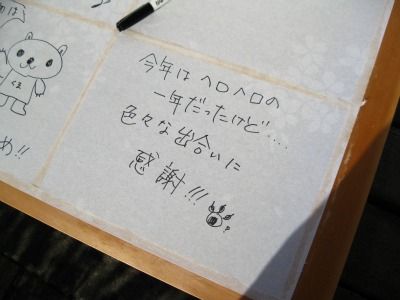 今年はヘロヘロの
一年だったけど....
色々な出合いに
感謝!!!
P
くま
め!!